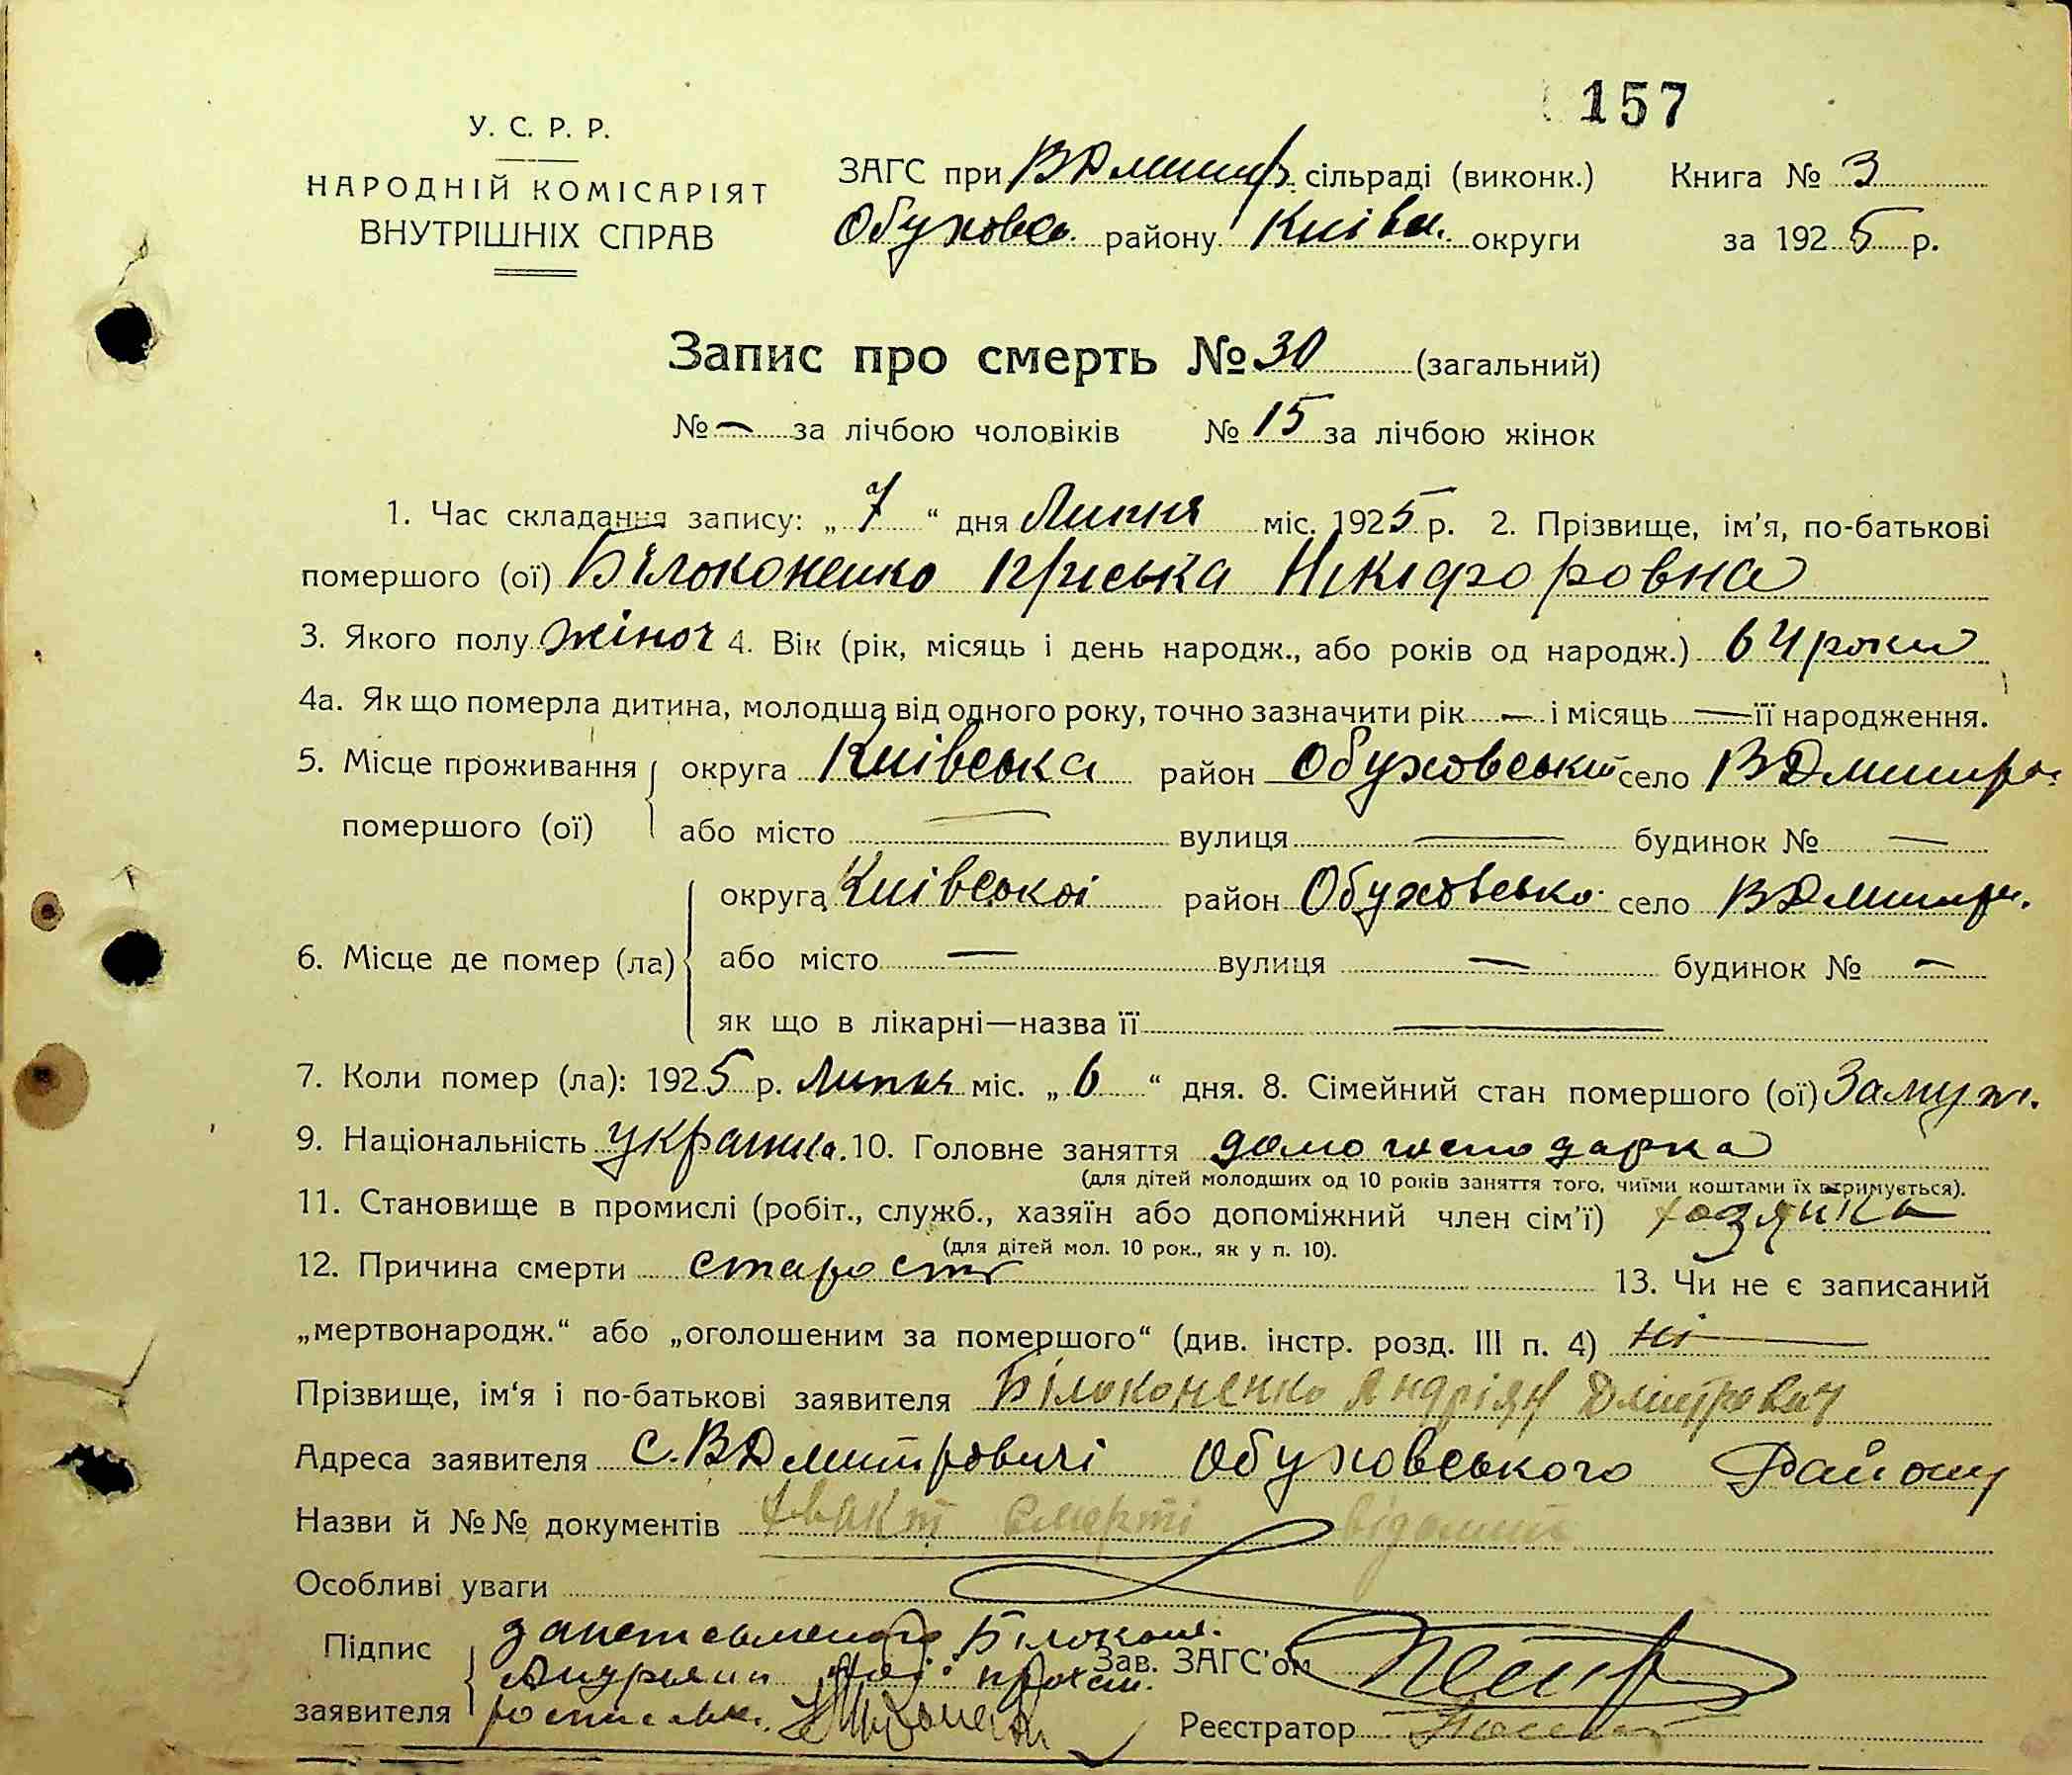 157
У. С. Р. Р.
НАРОДНІЙ КОМІСАРІЯТ
ВНУТРІШНІХ СПРАВ
ЗАГС при ВДмитр. сільраді (виконк.) Книга № 3
Обухово. району Київсь. округи за 1925 р.
Запис про смерть № 30 (загальний)
№ — за лічбою чоловіків № 15 за лічбою жінок
1. Час складання запису: „7“ дня Липня міс. 1925 р. 2. Прізвище, ім'я, по-батькові
помершого (ої) Білоконенко Пріська Нікіфоровна
3. Якого полу жіноч 4. Вік (рік, місяць і день народж., або років од народж.) 64 роки
4а. Як що померла дитина, молодша від одного року, точно зазначити рік — і місяць — її народження.
5. Місце проживання помершого (ої) округа Київська район Обуховський село ВДмитро.
або місто — вулиця — будинок № —
6. Місце де помер (ла) округа Київської район Обуховсько. село ВДмитр.
або місто — вулиця — будинок № —
як що в лікарні—назва її —
7. Коли помер (ла): 1925 р. Липня міс. „6“ дня. 8. Сімейний стан помершого (ої) Замуж.
9. Національність україн. 10. Головне заняття домогосподарка
(для дітей молодших од 10 років заняття того, чиїми коштами їх втримується).
11. Становище в промислі (робіт., служб., хазяїн або допоміжний член сім'ї) хозяйка
(для дітей мол. 10 рок., як у п. 10).
12. Причина смерти старость 13. Чи не є записаний
„мертвонародж.“ або „оголошеним за помершого“ (див. інстр. розд. III п. 4) ні —
Прізвище, ім'я і по-батькові заявителя Білоконенко Андріян Дмитрович
Адреса заявителя с. ВДмитровичі Обуховського Району
Назви й №№ документів факт смерті відомий
Особливі уваги
Підпис заявителя за неписьменого Білокон.
Андріяна його прохан.
росписався
Зав. ЗАГС'ом
Реєстратор